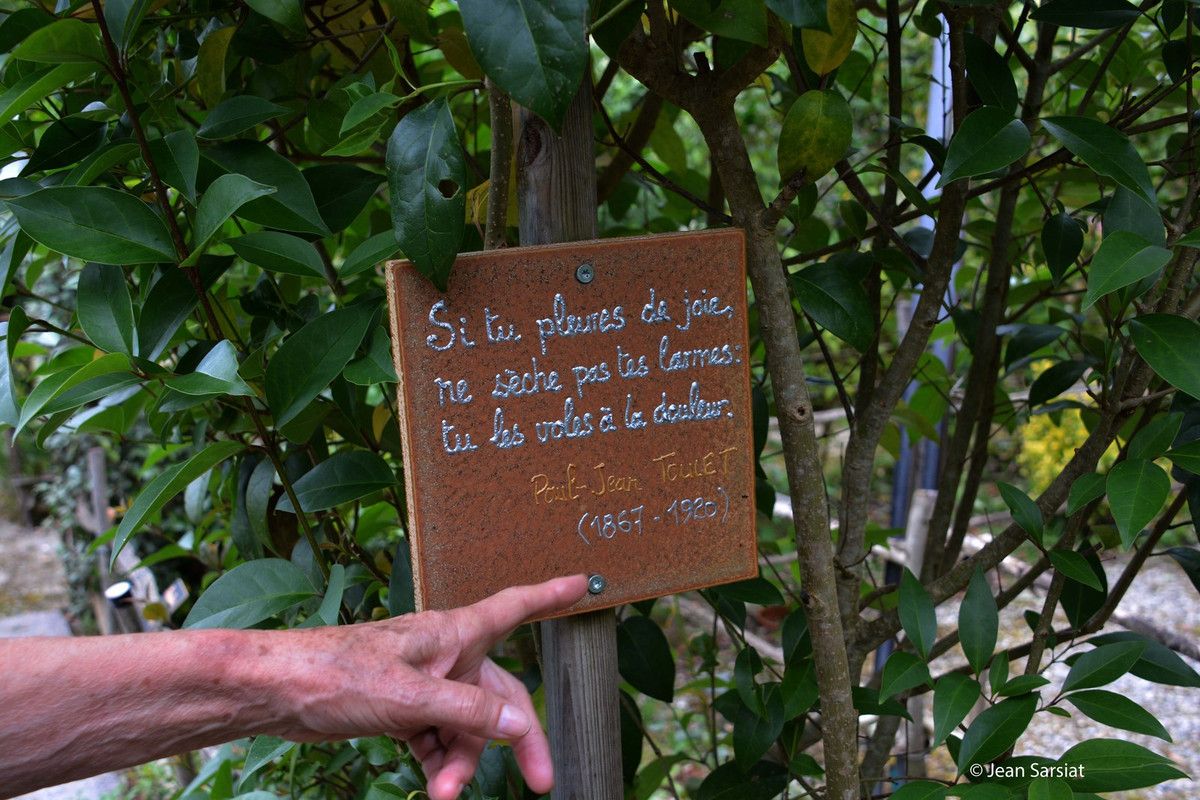 Si tu pleures de joie,
ne sèche pas tes larmes:
tu les voles à la douleur.
Paul-Jean TOULET
(1867-1920)
© Jean Sarsiat